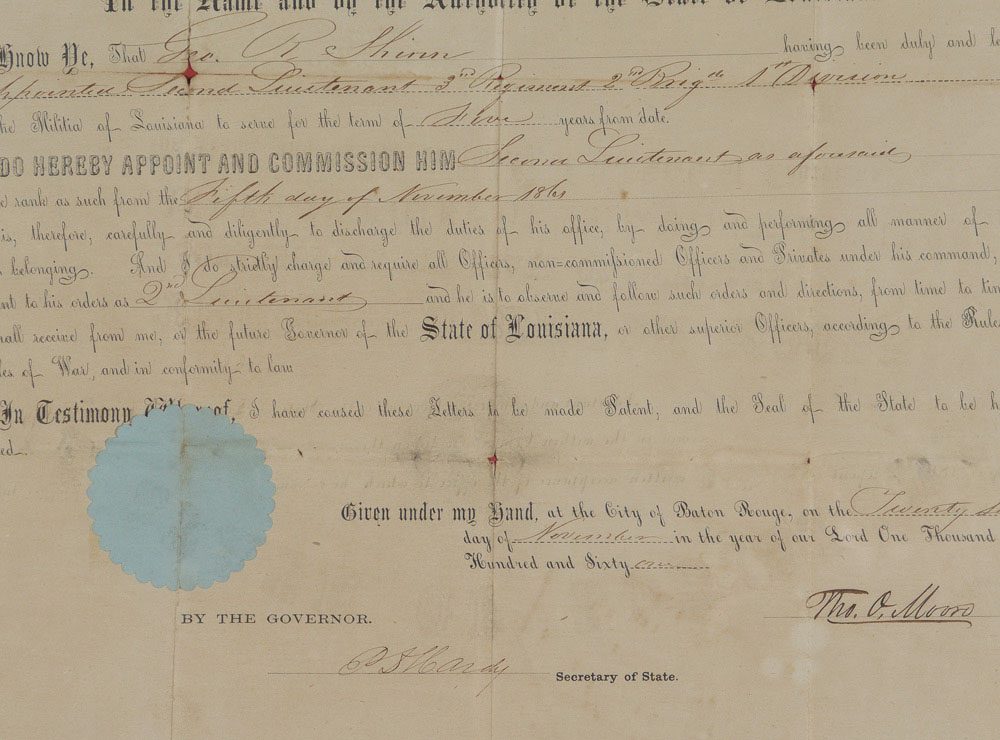 In the Name and by the Authority of the State of Louisiana
Know Ye, That Geo. R. Shinn having been duly and le
ppointed Second Lieutenant 3rd Regiment 2nd Brigde 1st Division
he Militia of Louisiana to serve for the term of years from date.
DO HEREBY APPOINT AND COMMISSION HIM Second Lieutenant as aforesaid
e rank as such from the Fifth day of November 1861
is, therefore, carefully and diligently to discharge the duties of his office, by doing and performing all manner of
s belonging. And I do strictly charge and require all Officers, non=commissioned Officers and Privates under his command,
nt to his orders as 2nd Lieutenant and he is to observe and follow such orders and directions, from time to tim
hall receive from me, or the future Governor of the State of Louisiana, or other superior Officers, according to the Rules
les of War, and in conformity to law
In Testimony Whereof, I have caused these Letters to be made Patent, and the Seal of the State to be h
ed.
Given under my Hand, at the City of Baton Rouge, on the Twenty
day of November in the year of our Lord One Thousand
Hundred and Sixty one
Tho. O. Moore
BY THE GOVERNOR.
P. D. Hardy
Secretary of State.